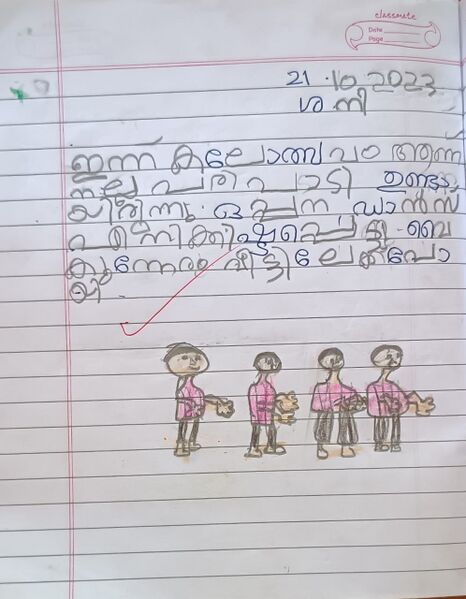 classmate
Date
Page
21.10.2023
ശനി
ഇന്ന് കലോത്സവം ആണ
നല്ല പരിപാടി ഉണ്ടാ
യിരുന്നു. ഒപ്പന ഡാൻസ്
എനിക്കിഷ്ടപ്പെട്ടു. വൈ
കുന്നേരം വീട്ടിലേക്ക് പോ
യി